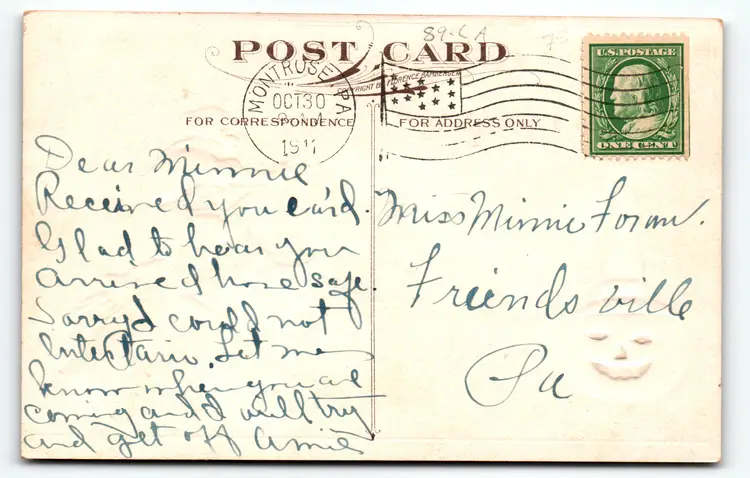 89-LA
POST CARD
COPYRIGHT BY FLORENCE BAMBERGER
MONTROSE, PA
OCT 30
1911
FOR CORRESPONDENCE
FOR ADDRESS ONLY
U.S. POSTAGE
ONE CENT
Dear Minnie
Received you card.
Glad to hear you
arrived home safe
Sorry I could not
Entertain. Let me
know when you are
coming and I will try
and get off Amie
Miss Minnie Foran.
Friendsville
Pa